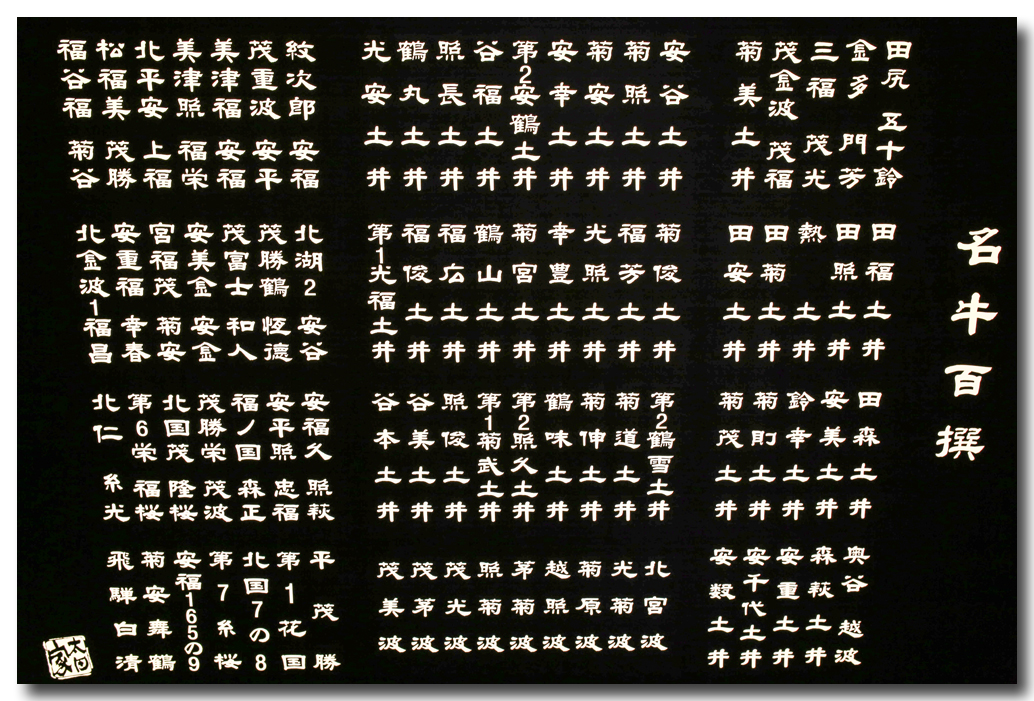 名牛百撰
田尻 五十鈴
金多 門芳
三福 茂光
茂金波 茂福
菊美土井
安谷土井
菊照土井
菊安土井
安幸土井
第2安鶴土井
谷福土井
照長土井
鶴丸土井
光安土井
紋次郎 安福
茂重波 安平
美津福 安福
美津照 福栄
北平安 上福
松福美 茂勝
福谷福 菊谷
田福土井
田照土井
熱土井
田菊土井
田安土井
菊俊土井
福芳土井
光照土井
幸豊土井
菊宮土井
鶴山土井
福広土井
福俊土井
第1光福土井
北湖2 安谷
茂勝鶴 恒徳
茂富士 和人
安美金 安金
宮福茂 菊安
安重福 幸春
北金波1 福昌
田森土井
安美土井
鈴幸土井
菊則土井
菊茂土井
第2鶴雪土井
菊道土井
菊伸土井
鶴味土井
第2照久土井
第1菊武土井
照俊土井
谷美土井
谷本土井
安福久 照萩
安平照 忠福
福ノ国 森正
茂勝栄 茂波
北国茂 隆桜
第6栄 福桜
北仁 糸光
奥谷 越波
森萩土井
安重土井
安千代土井
安数土井
北宮波
光菊波
菊原波
越照波
茅菊波
照菊波
茂光波
茂茅波
茂美波
平茂勝
第1花国
北国7の8
第7糸桜
安福165の9
菊安舞鶴
飛騨白清